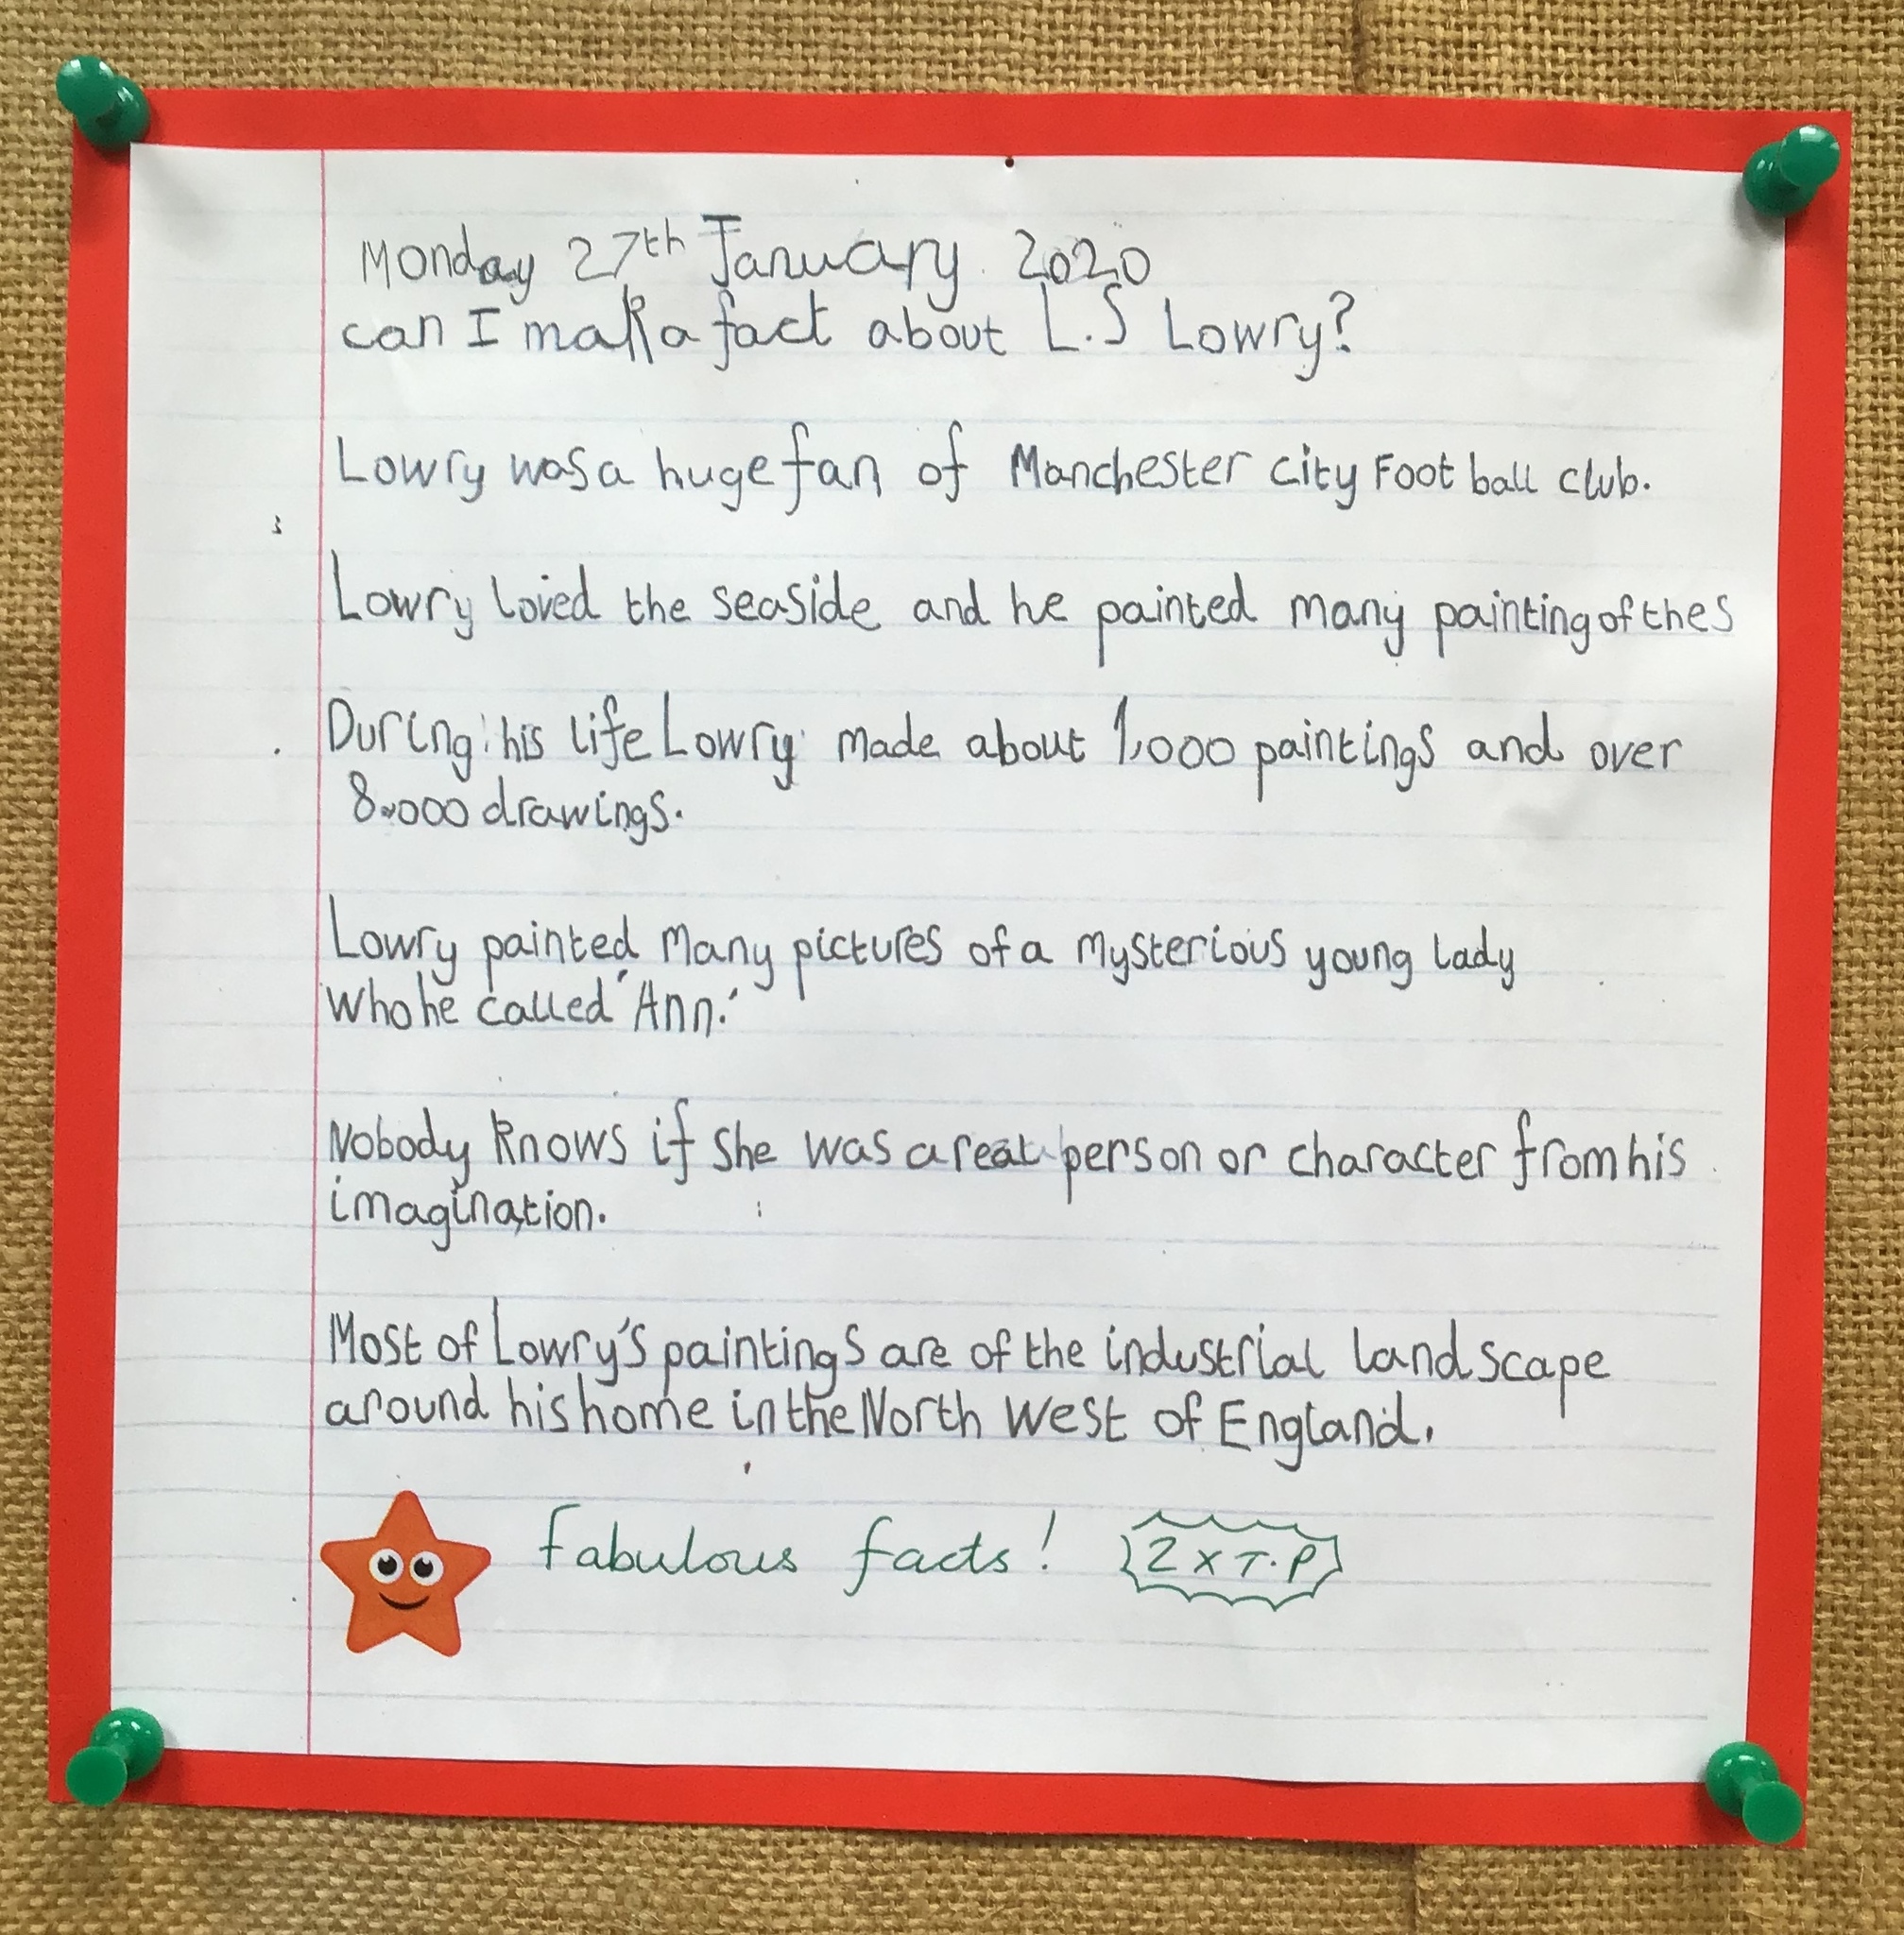 Monday 27th January 2020
can I mak a fact about L.S Lowry?
Lowry was a huge fan of Manchester city Football club.
Lowry loved the seaside and he painted many painting of the s
During his life Lowry made about 1,000 paintings and over
8,000 drawings.
Lowry painted Many pictures of a Mysterious young lady
who he called 'Ann.'
Nobody knows if she was a real person or character from his
imagination.
Most of Lowry's paintings are of the industrial landscape
around his home in the North West of England.
Fabulous facts! 2 x T.P